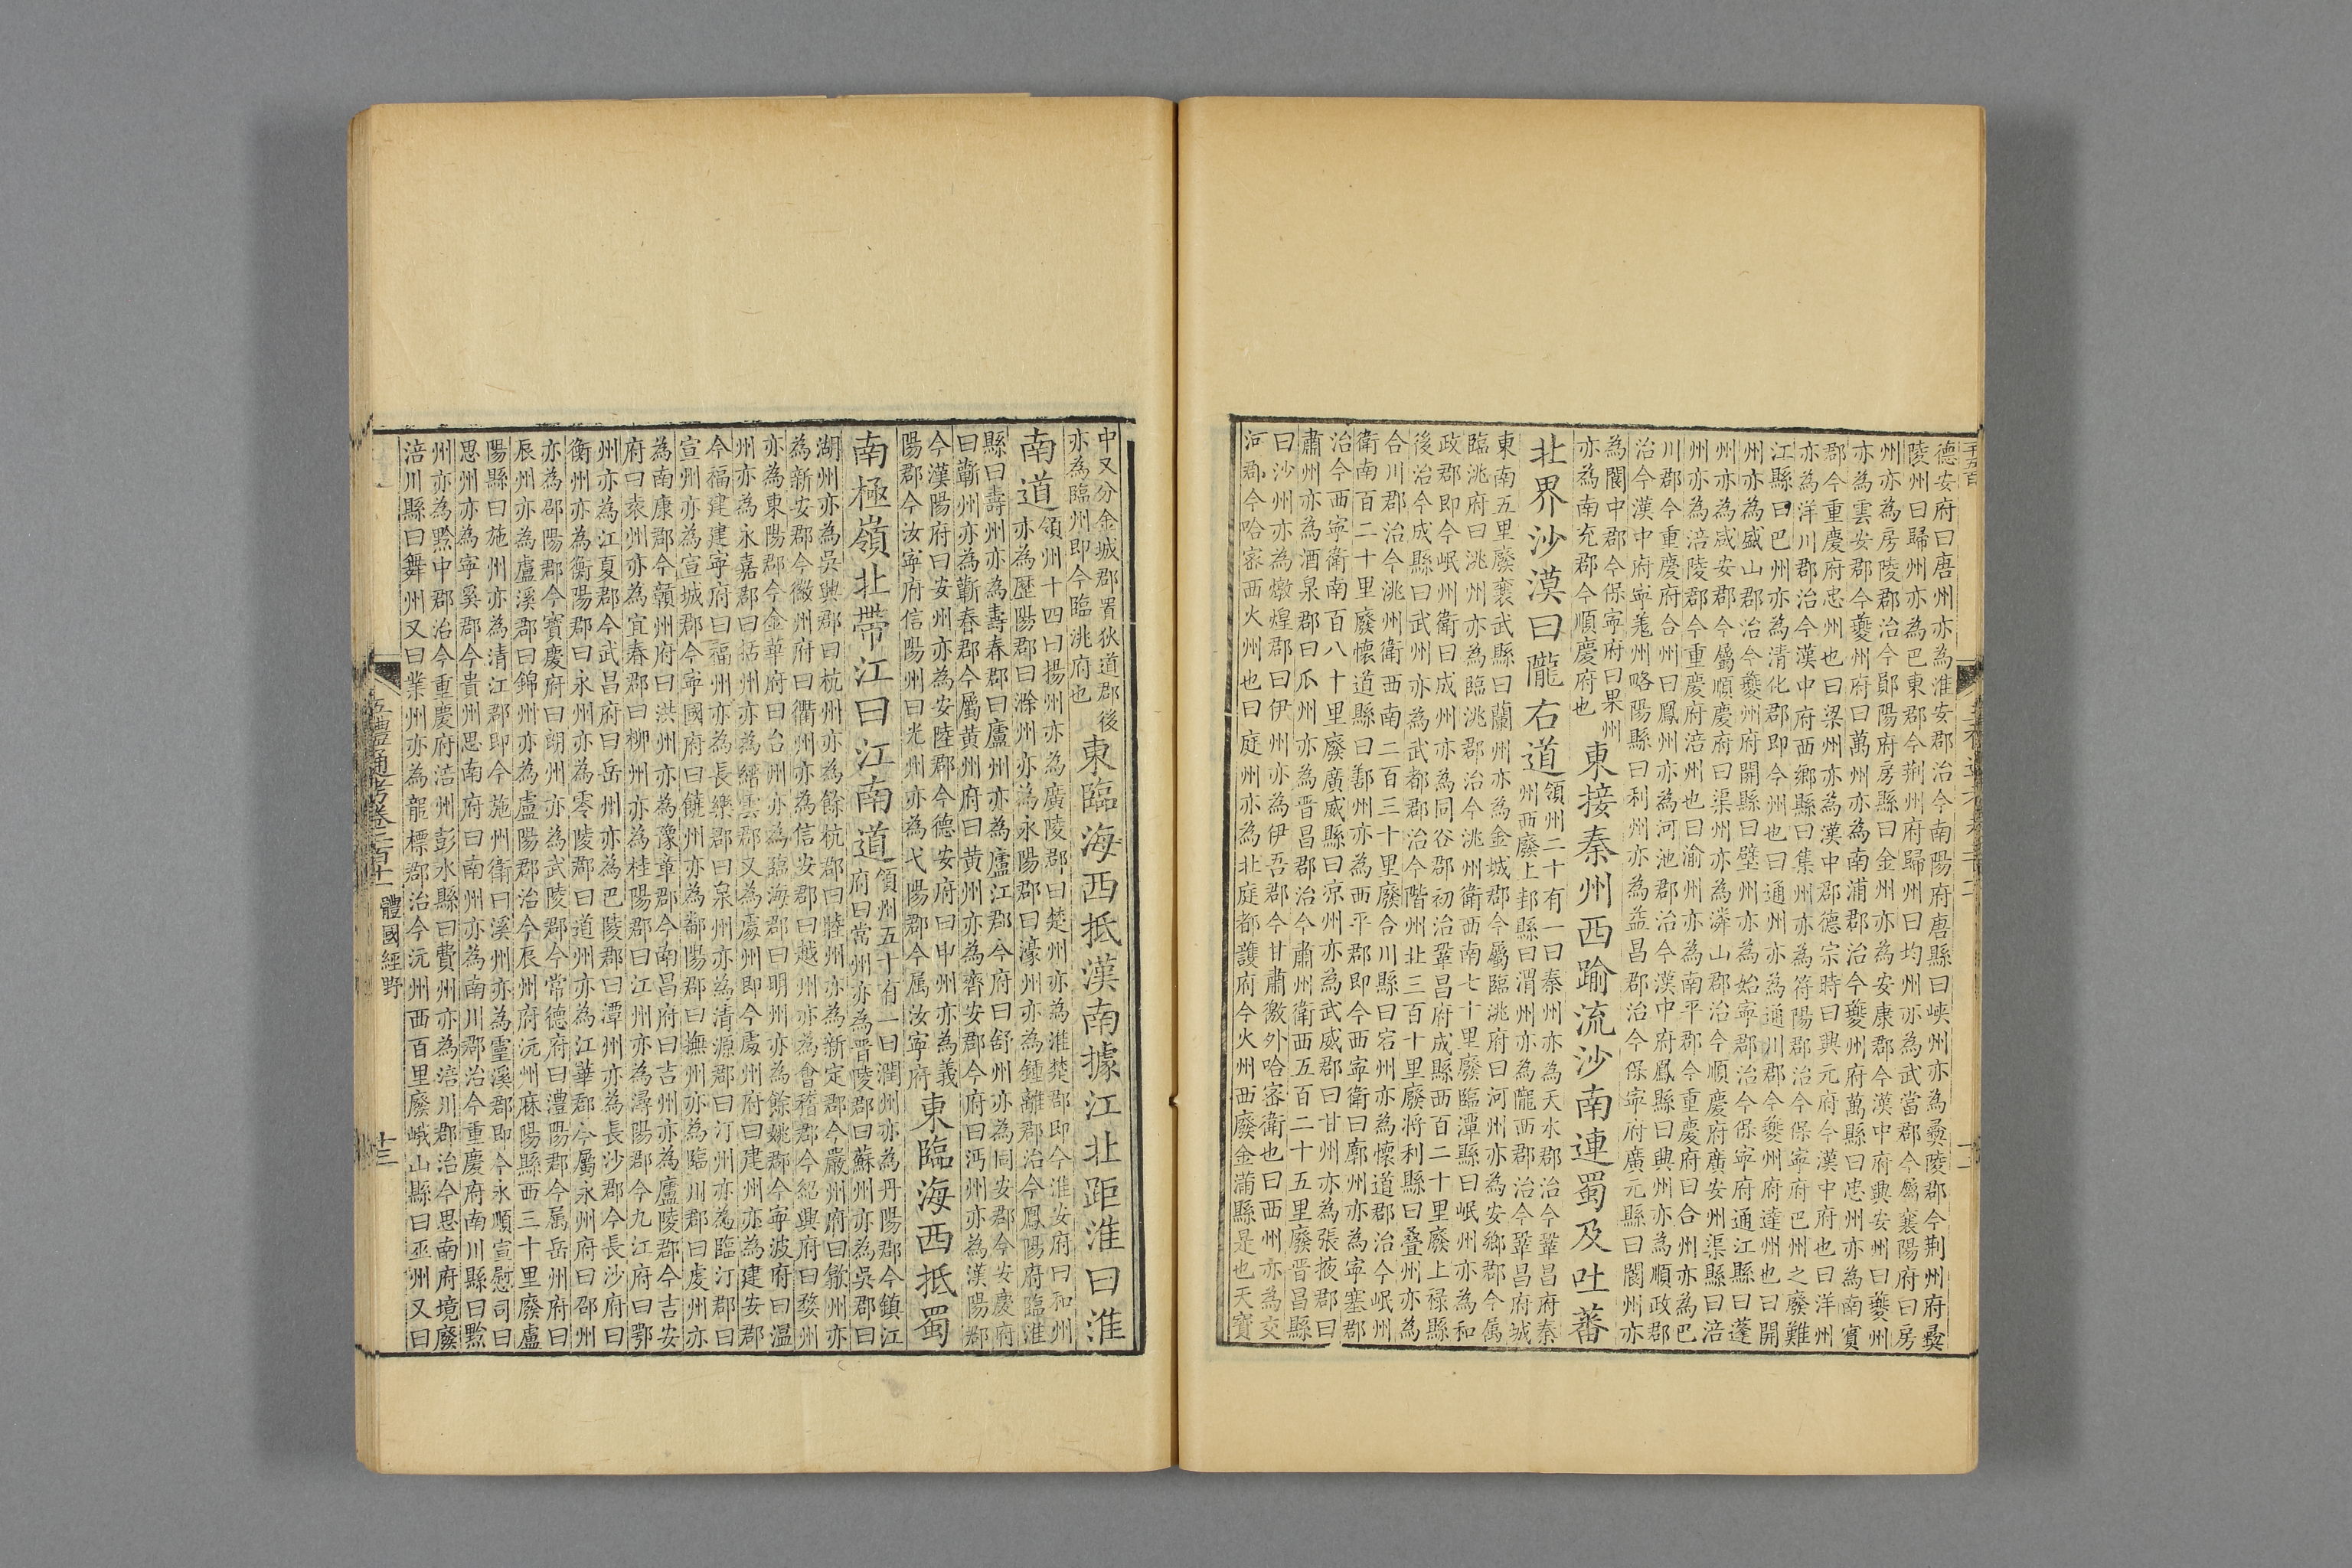 德安府曰唐州亦為淮安郡治今南陽府唐縣曰峽州亦為彝陵郡今荆州府彝
陵州曰歸州亦為巴東郡今荆州府歸州曰均州亦為武當郡今屬襄陽府曰房
州亦為房陵郡治今鄖陽府房縣曰金州亦為安康郡今漢中府興安州曰夔州
亦為雲安郡今夔州府曰萬州亦為南浦郡治今夔州府萬縣曰忠州亦為南賓
郡今重慶府忠州也曰梁州亦為漢中郡德宗時曰興元府今漢中府也曰洋州
亦為洋川郡治今漢中府西鄉縣曰集州亦為符陽郡治今保寧府巴州之廢難
江縣曰巴州亦為清化郡即今州也曰通州亦為通川郡今夔州府達州也曰開
州亦為盛山郡治今夔州府開縣曰壁州亦為始寧郡治今保寧府通江縣曰蓬
州亦為咸安郡今屬順慶府曰渠州亦為潾山郡治今順慶府廣安州渠縣曰涪
州亦為涪陵郡今重慶府涪州也曰渝州亦為南平郡今重慶府曰合州亦為巴
川郡今重慶府合州曰鳳州亦為河池郡治今漢中府鳳縣曰興州亦為順政郡
治今漢中府寧羗州略陽縣曰利州亦為益昌郡治今保寧府廣元縣曰閬州亦
為閬中郡今保寧府曰果州
亦為南充郡今順慶府也
東接秦州西踰流沙南連蜀及吐蕃
北界沙漠曰隴右道
領州二十有一曰秦州亦為天水郡治今鞏昌府秦
州西廢上邽縣曰渭州亦為隴西郡治今鞏昌府城
東南五里廢襄武縣曰蘭州亦為金城郡今屬臨洮府曰河州亦為安鄉郡今属
臨洮府曰洮州亦為臨洮郡治今洮州衛西南七十里廢臨潭縣曰岷州亦為和
政郡即今岷州衛曰成州亦為同谷郡初治鞏昌府成縣西百二十里廢上禄縣
後治今成縣曰武州亦為武都郡治今階州北三百十里廢将利縣曰叠州亦為
合川郡治今洮州衛西南二百三十里廢合川縣曰宕州亦為懷道郡治今岷州
衛南百二十里廢懷道縣曰鄯州亦為西平郡即今西寧衛曰廓州亦為寧塞郡
治今西寧衛南百八十里廢廣威縣曰凉州亦為武威郡曰甘州亦為張掖郡曰
肅州亦為酒泉郡曰瓜州亦為晋昌郡治今肅州衛西五百二十五里廢晋昌縣
曰沙州亦為燉煌郡曰伊州亦為伊吾郡今甘肅徼外哈密衛也曰西州亦為交
河郡今哈密西火州也曰庭州亦為北庭都護府今火州西廢金蒲縣是也天寶
中又分金城郡置狄道郡後
亦為臨州即今臨洮府也
東臨海西抵漢南據江北距淮曰淮
南道
領州十四曰揚州亦為廣陵郡曰楚州亦為淮楚郡即今淮安府曰和州
亦為歷陽郡曰滁州亦為永陽郡曰濠州亦為鍾離郡治今鳳陽府臨淮
縣曰壽州亦為壽春郡曰廬州亦為廬江郡今府曰舒州亦為同安郡今安慶府
曰蘄州亦為蘄春郡今屬黄州府曰黄州亦為齊安郡今府曰沔州亦為漢陽郡
今漢陽府曰安州亦為安陸郡今德安府曰申州亦為義
陽郡今汝寧府信陽州曰光州亦為弋陽郡今属汝寧府
東臨海西抵蜀
南極嶺北帶江曰江南道
領州五十有一曰潤州亦為丹陽郡今鎮江
府曰常州亦為晋陵郡曰蘇州亦為吳郡曰
湖州亦為吳興郡曰杭州亦為餘杭郡曰睦州亦為新定郡今嚴州府曰歙州亦
為新安郡今徽州府曰衢州亦為信安郡曰越州亦為會稽郡今紹興府曰婺州
亦為東陽郡今金華府曰台州亦為臨海郡曰明州亦為餘姚郡今寧波府曰温
州亦為永嘉郡曰括州亦為縉雲郡又為處州即今處州府曰建州亦為建安郡
今福建建寧府曰福州亦為長樂郡曰泉州亦為清源郡曰汀州亦為臨汀郡曰
宣州亦為宣城郡今寧國府曰饒州亦為鄱陽郡曰撫州亦為臨川郡曰䖍州亦
為南康郡今贛州府曰洪州亦為豫章郡今南昌府曰吉州亦為廬陵郡今吉安
府曰袁州亦為宜春郡曰柳州亦為桂陽郡曰江州亦為潯陽郡今九江府曰鄂
州亦為江夏郡今武昌府曰岳州亦為巴陵郡曰潭州亦為長沙郡今長沙府曰
衡州亦為衡陽郡曰永州亦為零陵郡曰道州亦為江華郡今屬永州府曰邵州
亦為邵陽郡今寳慶府曰朗州亦為武陵郡今常德府曰澧州亦為澧陽郡今属岳州府曰
辰州亦為盧溪郡曰錦州亦為盧陽郡治今辰州府沅州麻陽縣西三十里廢盧
陽縣曰施州亦為清江郡即今施州衛曰溪州亦為靈溪郡即今永順宣慰司曰
思州亦為寧夷郡今貴州思南府曰南州亦為南川郡治今重慶府南川縣曰黔
州亦為黔中郡治今重慶府涪州彭水縣曰費州亦為涪川郡治今思南府境廢
涪川縣曰舞州又曰業州亦為龍標郡治今沅州西百里廢峨山縣曰巫州又曰
五禮通考卷二百十一 體國經野 十三